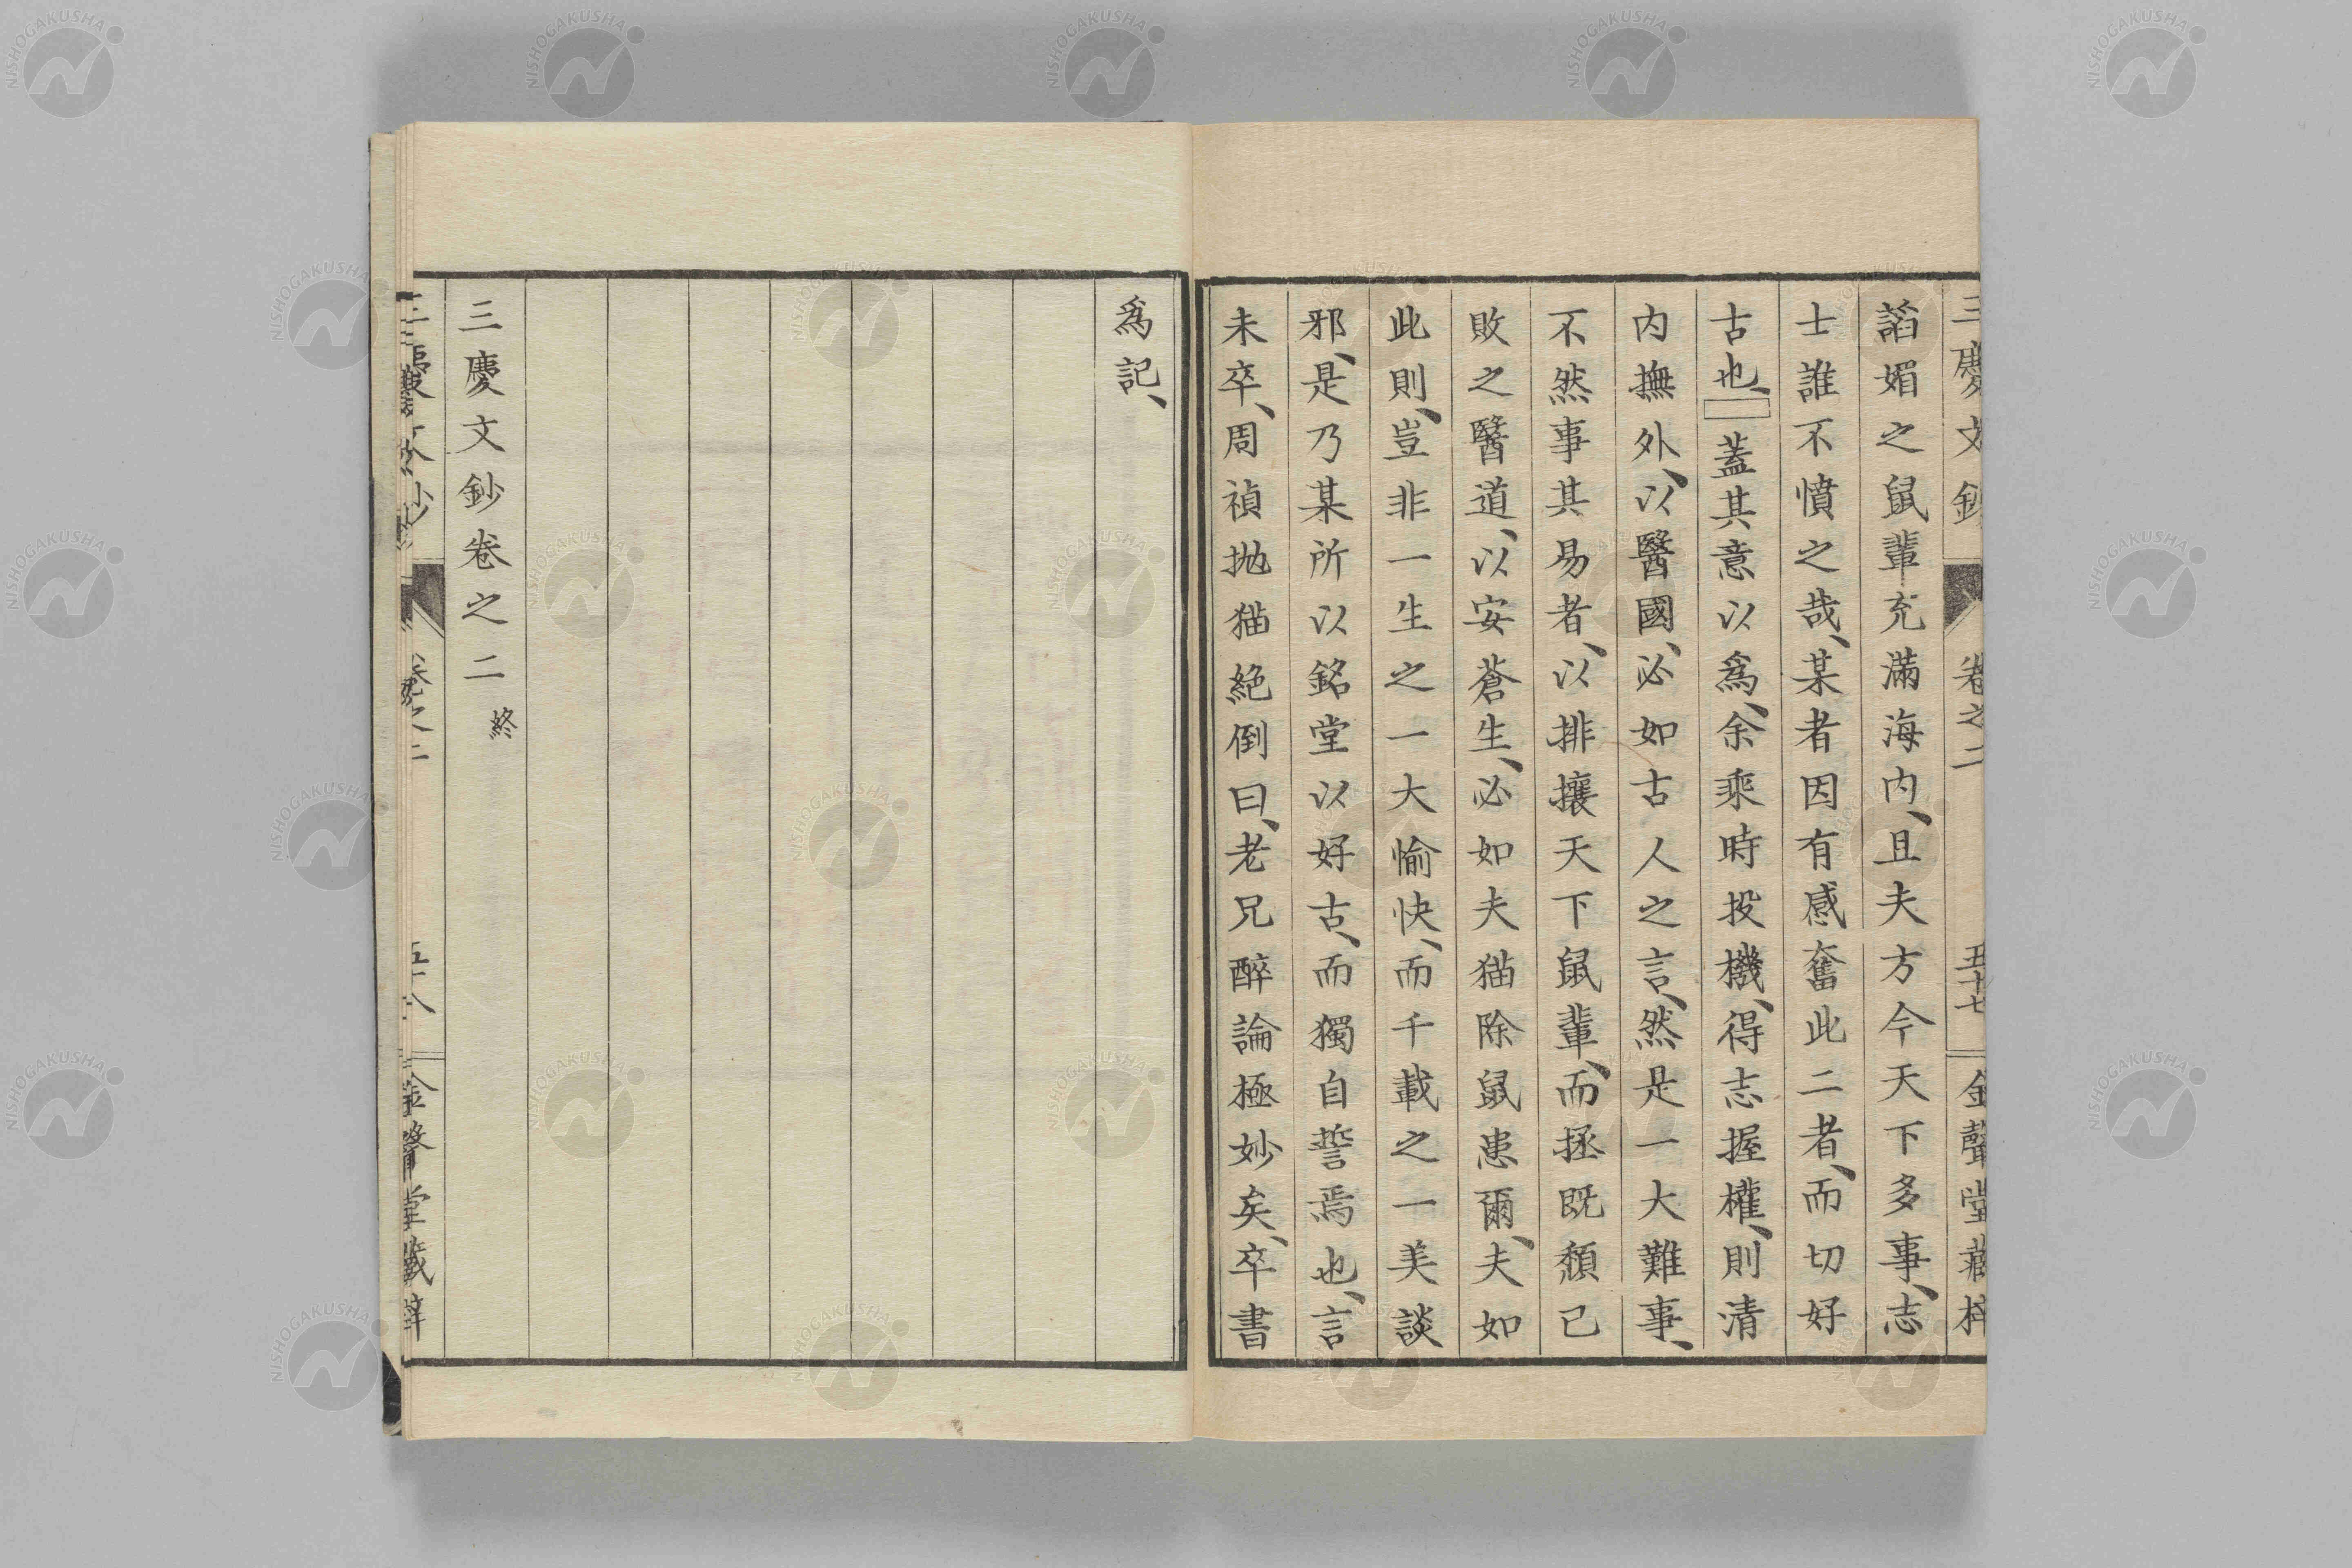 三慶文鈔 卷之二 五十七 金聲堂藏梓
諂媚之鼠輩充滿海内、且夫方今天下多事、志
士誰不憤之哉、某者因有感奮此二者、而切好
古也、蓋其意以爲、余乘時投機、得志握權、則清
内撫外、以醫國、必如古人之言、然是一大難事、
不然事其易者、以排攘天下鼠輩、而拯既頽已
敗之醫道、以安蒼生、必如夫猫除鼠患爾、夫如
此則、豈非一生之一大愉快、而千載之一美談
邪、是乃某所以銘堂以好古、而獨自誓焉也、言
未卒、周禎抛猫絶倒曰、老兄醉論極妙矣、卒書
爲記、
三慶文鈔卷之二 終
五十八
金聲堂藏梓
NISHOGAKUSHA